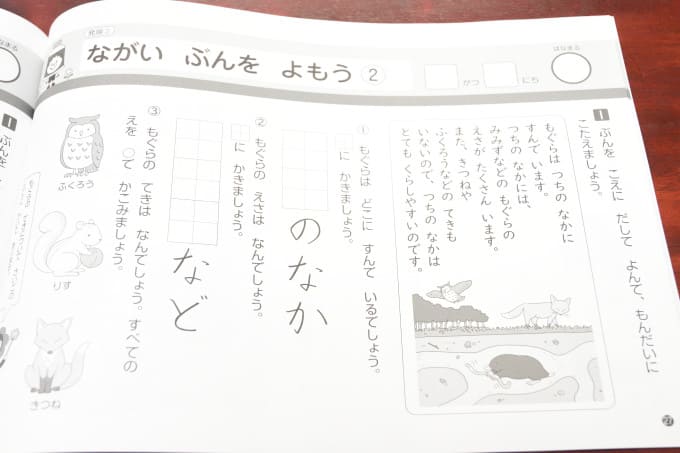 発展2
ながい ぶんを よもう ②
がつ
にち
はなまる
1 ぶんを こえに だして よんで、もんだいに
こたえましょう。
もぐらは つちの なかに
すんで います。
つちの なかには、
みみずなどの もぐらの
えさが たくさん います。
また、きつねや
ふくろうなどの てきも
いないので、つちの なかは
とても くらしやすいのです。
① もぐらは どこに すんで いるでしょう。
□に かきましょう。
のなか
② もぐらの えさは なんでしょう。
□に かきましょう。
など
③ もぐらの てきは なんでしょう。すべての
えを ○て かこみましょう。
ふくろう
りす
きつね
27
なまる
1 ぶんを